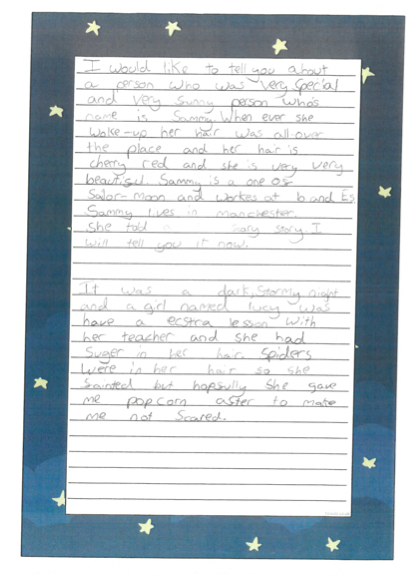 I would like to tell you about
a person who was very special
and very sunny person who's
name is Sammy. When ever she
woke-up her hair was all over
the place and her hair is
cherry red and she is very very
beautisul. Sammy is a one os
Salor-moon and workes at b and Es
Sammy lives in manchester.
She told story. I
will tell you it now.
It was a dark, Stormy night
and a girl named lucy was
have a ecstra lesson with
her teacher and she had
Suger in her hair. Spiders
were in her hair so she
sainted but hopsully she gave
me popcorn aster to make
me not Scared.